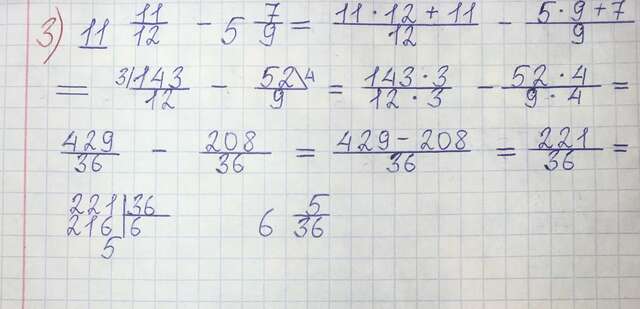 3) 11 11/12 - 5 7/9 = (11·12+11)/12 - (5·9+7)/9
= 3/ 143/12 - 52/9 \4 = (143·3)/(12·3) - (52·4)/(9·4) =
429/36 - 208/36 = (429-208)/36 = 221/36 =
221 | 36
216 | 6 6 5/36
5